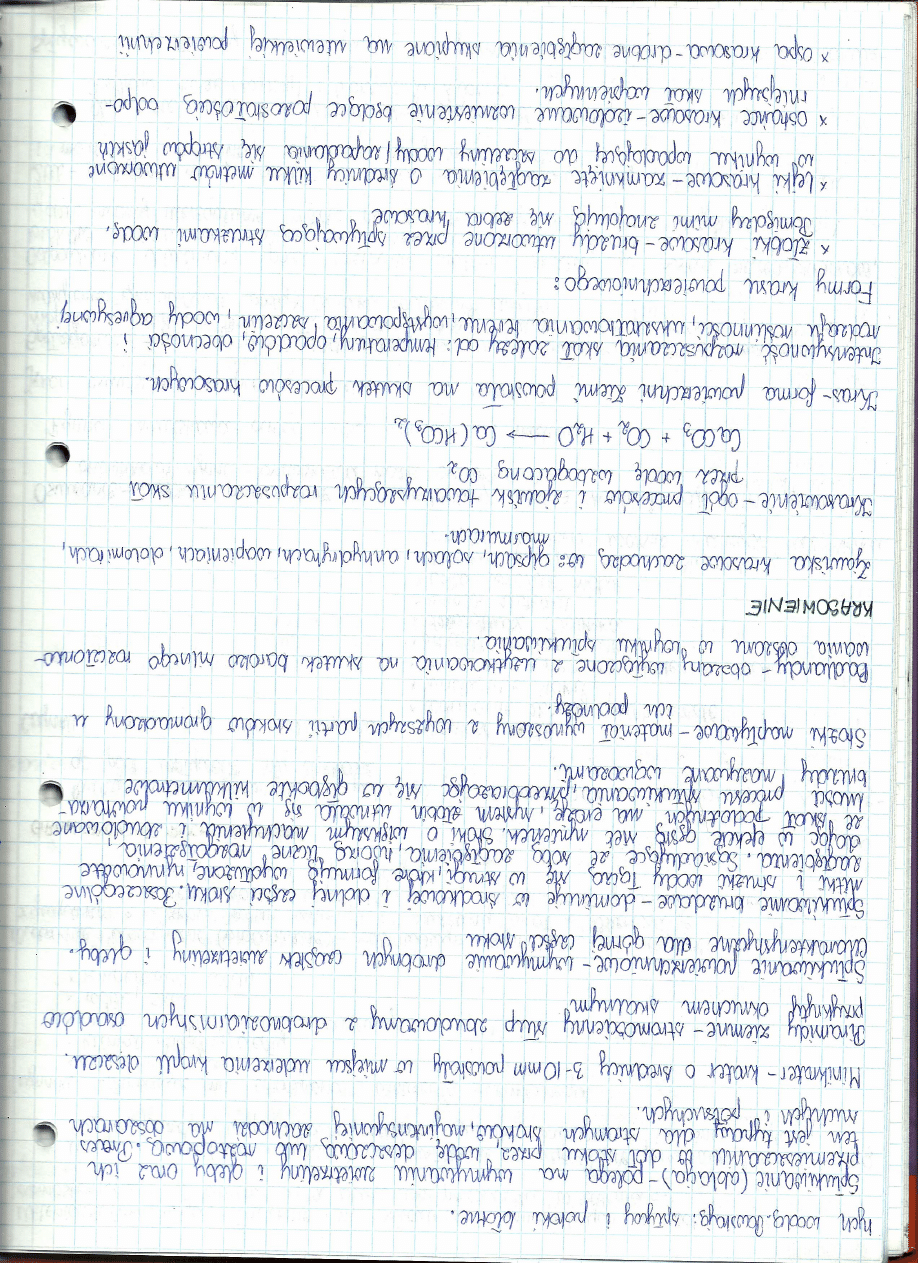 nych wodą. Powstają: spływy i potoki błotne.
Spłukiwanie (ablacja) - polega na wymywaniu zwietrzeliny i gleby oraz ich
przemieszczaniu w dół stoku przez wodę deszczową lub roztopową. Proces
ten jest typowy dla stromych stoków, najintensywniej zachodzi na obszarach
suchych i półsuchych.
Minikrater - krater o średnicy 3-10mm powstały w miejscu uderzenia kropli deszczu.
Piramidy ziemne - stromościenny słup zbudowany z drobnoziarnistych osadów
przykryty okruchem skalnym
Spłukiwanie powierzchniowe - wymywanie drobnych cząstek zwietrzeliny i gleby.
Charakterystyczne dla górnej części stoku
Spłukiwanie bruzdowe - dominuje w środkowej i dolnej części stoku. Poszczególne
nitki i strużki wody łączą się w strugi, które formują wydłużone, rynnowate
zagłębienia. Sąsiadujące ze sobą zagłębienia, tworzą liczne rozgałęzienia,
dając w efekcie gęstą sieć rynienek. Stoki o większym nachyleniu i zbudowane
ze skał podatnych na erozję, system żłobin utrwala się w wyniku powtarzal-
ności procesu spłukiwania, przeobrażając się w głębokie kilkumetrowe
bruzdy nazywane wąwozami.
Stożki napływowe - materiał wynoszony z wyższych partii stoków gromadzony u
ich podnóży.
Badlandy - obszary wyłączone z użytkowania na skutek bardzo silnego rozczłonko-
wania obszaru w wyniku spłukiwania.
KRASOWIENIE
Zjawiska krasowe zachodzą w: gipsach, solach, anhydrytach, wapieniach, dolomitach,
marmurach.
Krasowienie - ogół procesów i zjawisk towarzyszących rozpuszczaniu skał
przez wodę wzbogaconą CO₂
CaCO₃ + CO₂ + H₂O → Ca(HCO₃)₂
Kras - forma powierzchni Ziemi powstała na skutek procesów krasowych.
Intensywność rozpuszczania skał zależy od: temperatury, opadów, obecności i
rodzaju roślinności, ukształtowania terenu, występowania szczelin, wody agresywnej
Formy krasu powierzchniowego:
x żłobki krasowe - bruzdy utworzone przez spływającą strużkami wodę.
Pomiędzy nimi znajdują się żebra krasowe
x Lejki krasowe - zamknięte zagłębienia o średnicy kilku metrów utworzone
w wyniku wpadającej do szczeliny wody / zapadania się stropów jaskiń
x ostańce krasowe - izolowane wzniesienie będące pozostałością odpo-
rniejszych skał wapiennych.
x ospa krasowa - drobne zagłębienia skupione na niewielkiej powierzchni